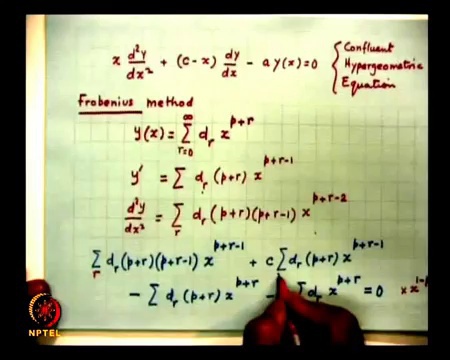 x d²y/dx² + (c-x) dy/dx - a y(x) = 0 { Confluent Hypergeometric Equation
Frobenius method
y(x) = ∑_{r=0}^{∞} d_r x^{p+r}
y' = ∑ d_r (p+r) x^{p+r-1}
d²y/dx² = ∑_r d_r (p+r)(p+r-1) x^{p+r-2}
∑_r d_r (p+r)(p+r-1) x^{p+r-1} + c ∑ d_r (p+r) x^{p+r-1}
- ∑ d_r (p+r) x^{p+r} - ∑ d_r x^{p+r} = 0 × x^{1-p}
NPTEL